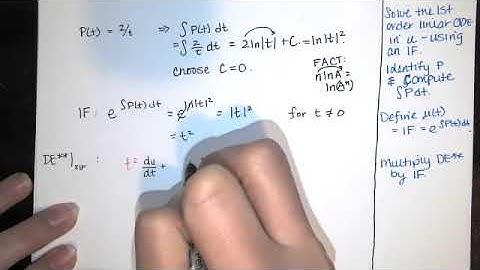 P(t) = 2/t ⇒ ∫P(t) dt
= ∫ 2/t dt = 2 ln|t| + C = ln|t|²
choose C = 0.
FACT:
n ln A = ln(Aⁿ)
IF: e^∫P(t)dt = e^ln|t|² = |t|² for t ≠ 0
= t²
t² du/dt +
Solve the 1st
order linear ODE
in u - using
an IF.
Identify P
& compute
∫P dt.
Define μ(t)
= IF = e^∫P(t)dt
Multiply DE**
by IF.